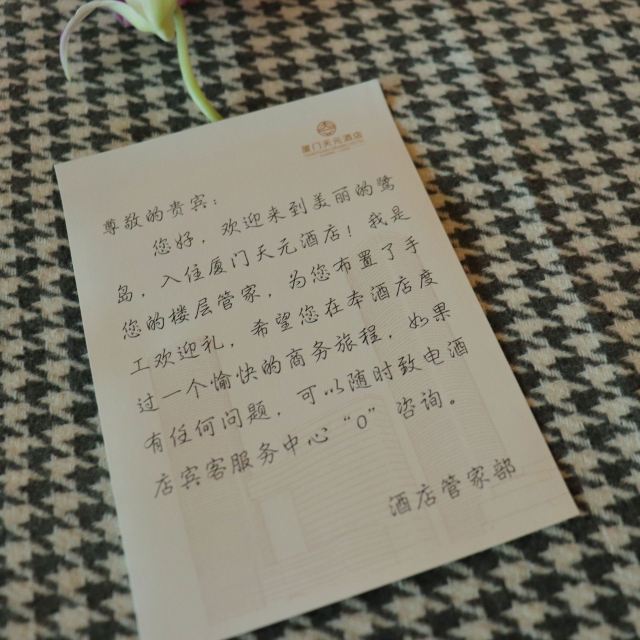 厦门天元酒店
尊敬的贵宾：
您好，欢迎来到美丽的鹭
岛，入住厦门天元酒店！我是
您的楼层管家，为您布置了手
工欢迎礼，希望您在本酒店度
过一个愉快的商务旅程，如果
有任何问题，可以随时致电酒
店宾客服务中心“0”咨询。
酒店管家部